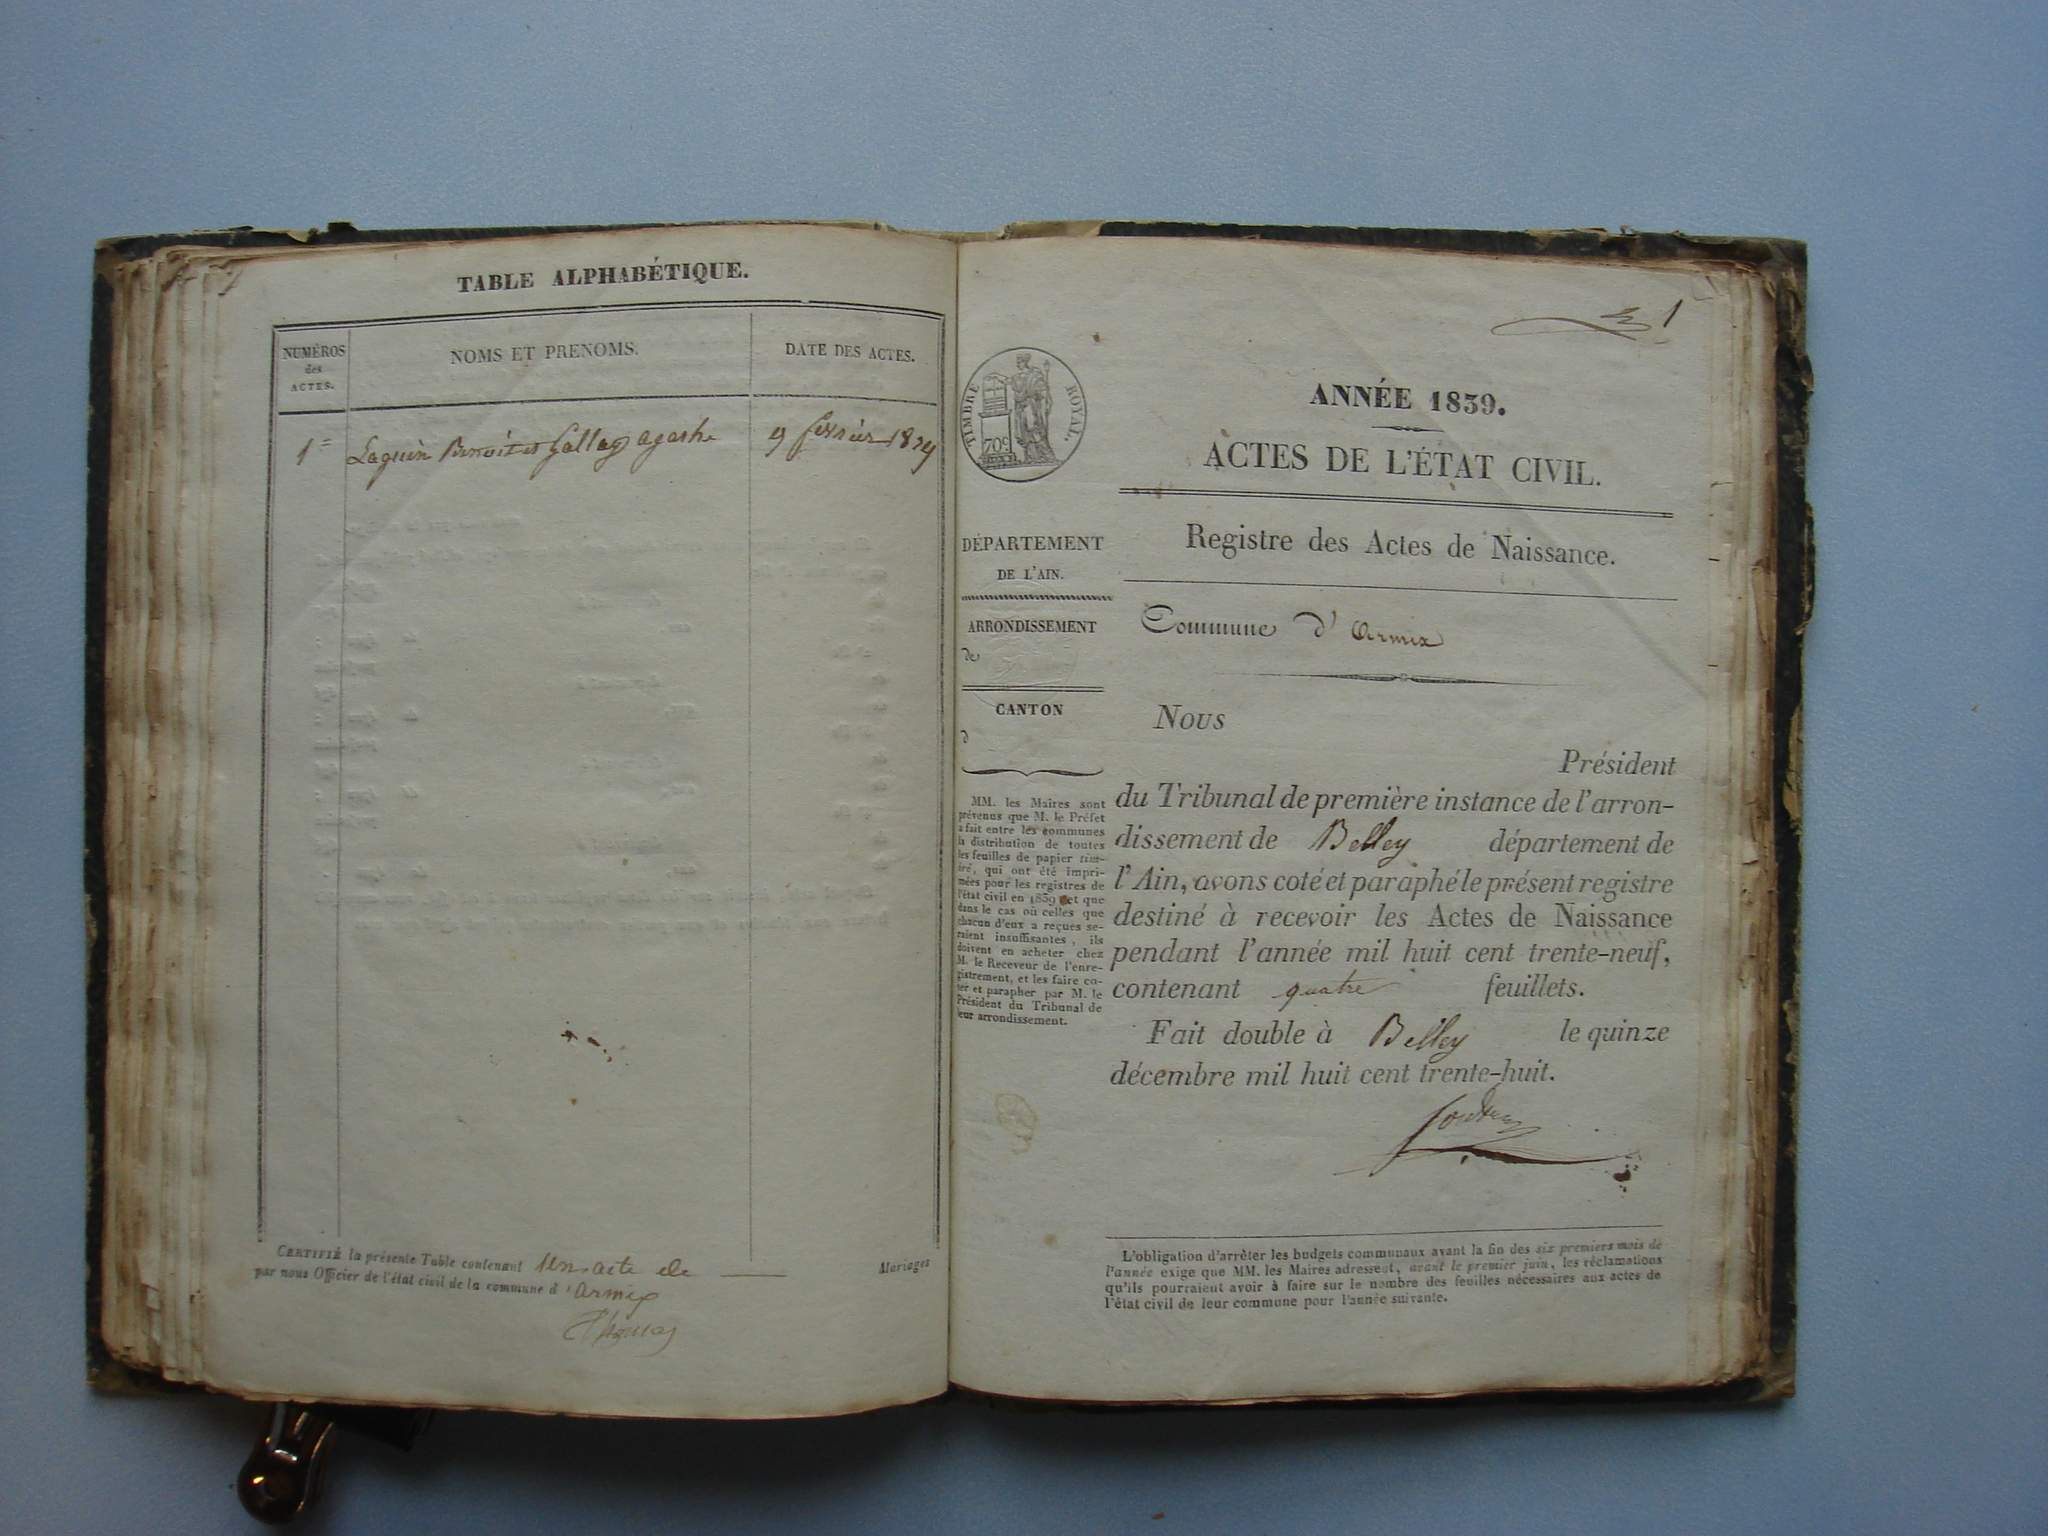 TABLE ALPHABÉTIQUE.
NUMÉROS
des
ACTES.
NOMS ET PRENOMS.
DATE DES ACTES.
1= Laguin Benoit et Gallay agathe 9 février
CERTIFIÉ la présente Table contenant un acte de Mariages
par nous Officier de l'état civil de la commune d'armix
1
TIMBRE ROYAL.
70c
ANNÉE 1839.
ACTES DE L'ÉTAT CIVIL.
Registre des Actes de Naissance.
Commune d'Armix
DÉPARTEMENT
DE L'AIN.
ARRONDISSEMENT
de
CANTON
d
MM. les Maires sont
prévenus que M. le Préfet
a fait entre les communes
la distribution de toutes
les feuilles de papier tim-
bré, qui ont été impri-
mées pour les registres de
l'état civil en 1839 et que
dans le cas où celles que
chacun d'eux a reçues se-
raient insuffisantes, ils
doivent en acheter chez
M. le Receveur de l'enre-
gistrement, et les faire co-
ter et parapher par M. le
Président du Tribunal de
leur arrondissement.
Nous
Président
du Tribunal de première instance de l'arron-
dissement de Belley département de
l'Ain, avons coté et paraphé le présent registre
destiné à recevoir les Actes de Naissance
pendant l'année mil huit cent trente-neuf,
contenant quatre feuillets.
Fait double à Belley le quinze
décembre mil huit cent trente-huit.
L'obligation d'arrêter les budgets communaux avant la fin des six premiers mois de
l'année exige que MM. les Maires adressent, avant le premier juin, les réclamations
qu'ils pourraient avoir à faire sur le nombre des feuilles nécessaires aux actes de
l'état civil de leur commune pour l'année suivante.